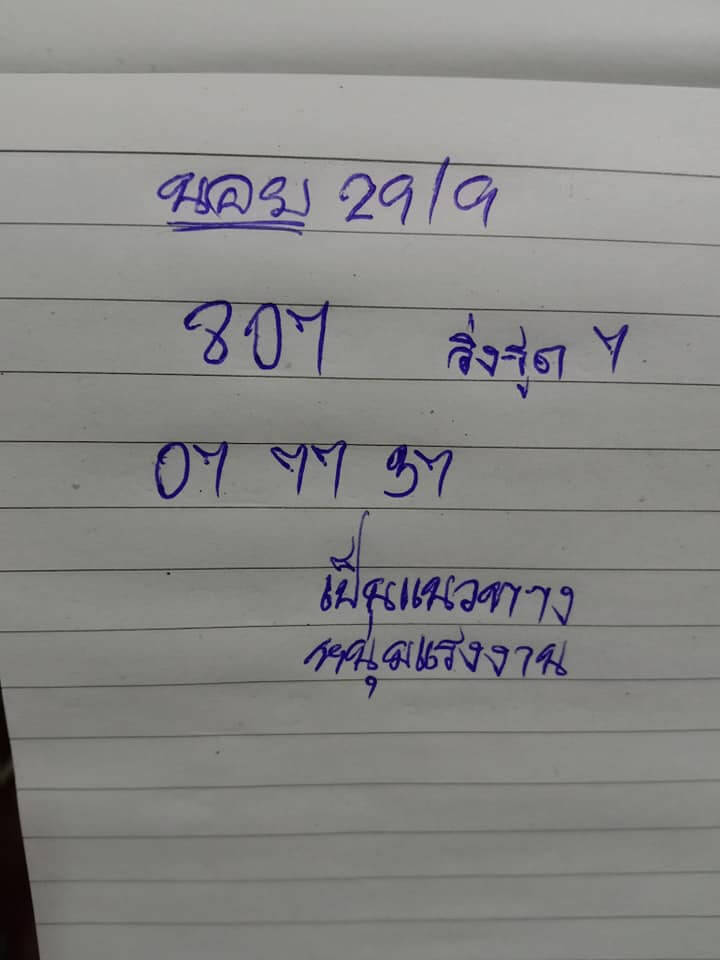 นอย 29/9
807 วิ่งรูด 7
07 77 37
เป็นแนวทาง
หนุ่มแรงงาน